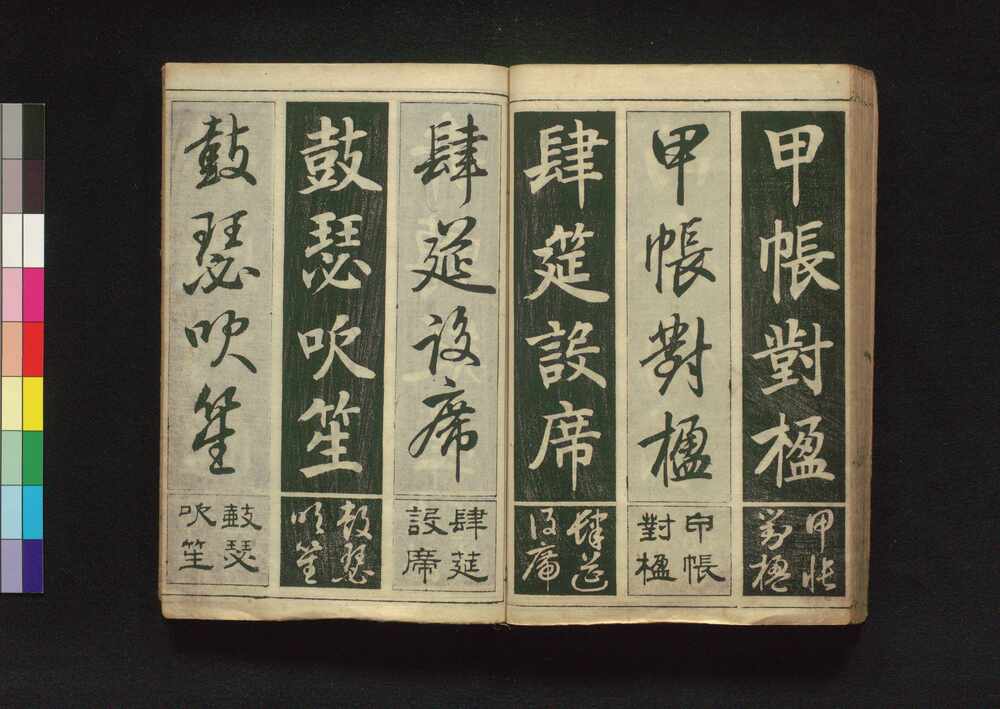 甲帳對楹
甲帳
對楹
甲帳對楹
甲帳
對楹
肆筵設席
肆筵
設席
肆筵設席
肆筵
設席
鼓瑟吹笙
鼓瑟
吹笙
鼓瑟吹笙
鼓瑟
吹笙